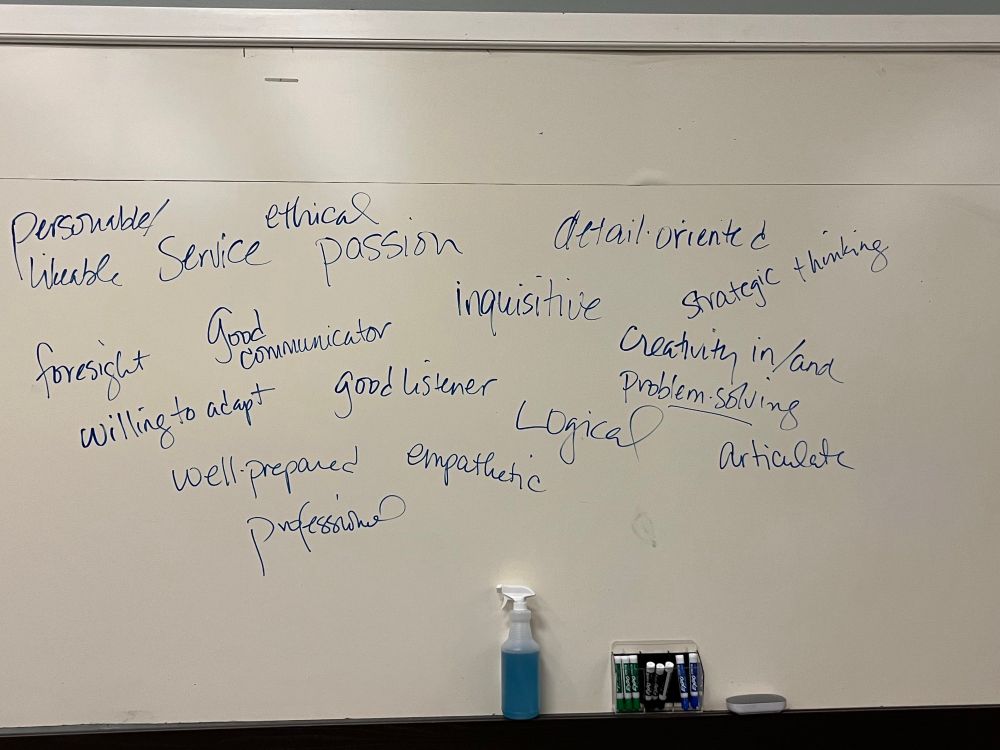 personable/
likeable
Service
ethical
passion
detail-oriented
inquisitive
strategic thinking
foresight
Good
communicator
creativity in/and
problem-solving
willing to adapt
good listener
Logical
articulate
well-prepared
empathetic
professional
EXPO
EXPO
EXPO
EXPO